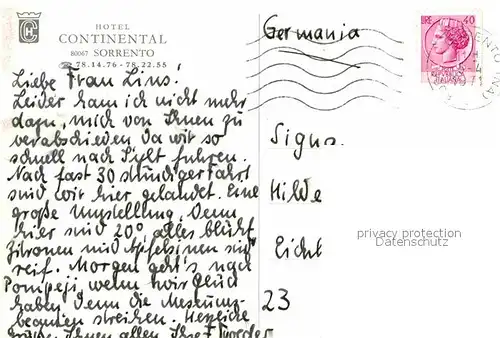 HOTEL
CONTINENTAL
80067 SORRENTO
☎ 78.14.76 - 78.22.55
Germania
LIRE 40
Liebe Frau Lins!
Leider kam ich nicht mehr
dazu, mich von Ihnen zu
verabschieden da wir so
schnell nach Sylt fuhren.
Nach fast 30 stündiger Fahrt
sind wir hier gelandet. Eine
große Umstellung. Denn
hier sind 20° alles blüht
Zitronen und Apfelsinen sind
reif. Morgen geht's nach
Pompeji, wenn wir Glück
haben denn die Museums-
beamten streiken. Herzliche
Grüße Ihnen allen Ihre
Signa.
Hilde
23
privacy protection
Datenschutz